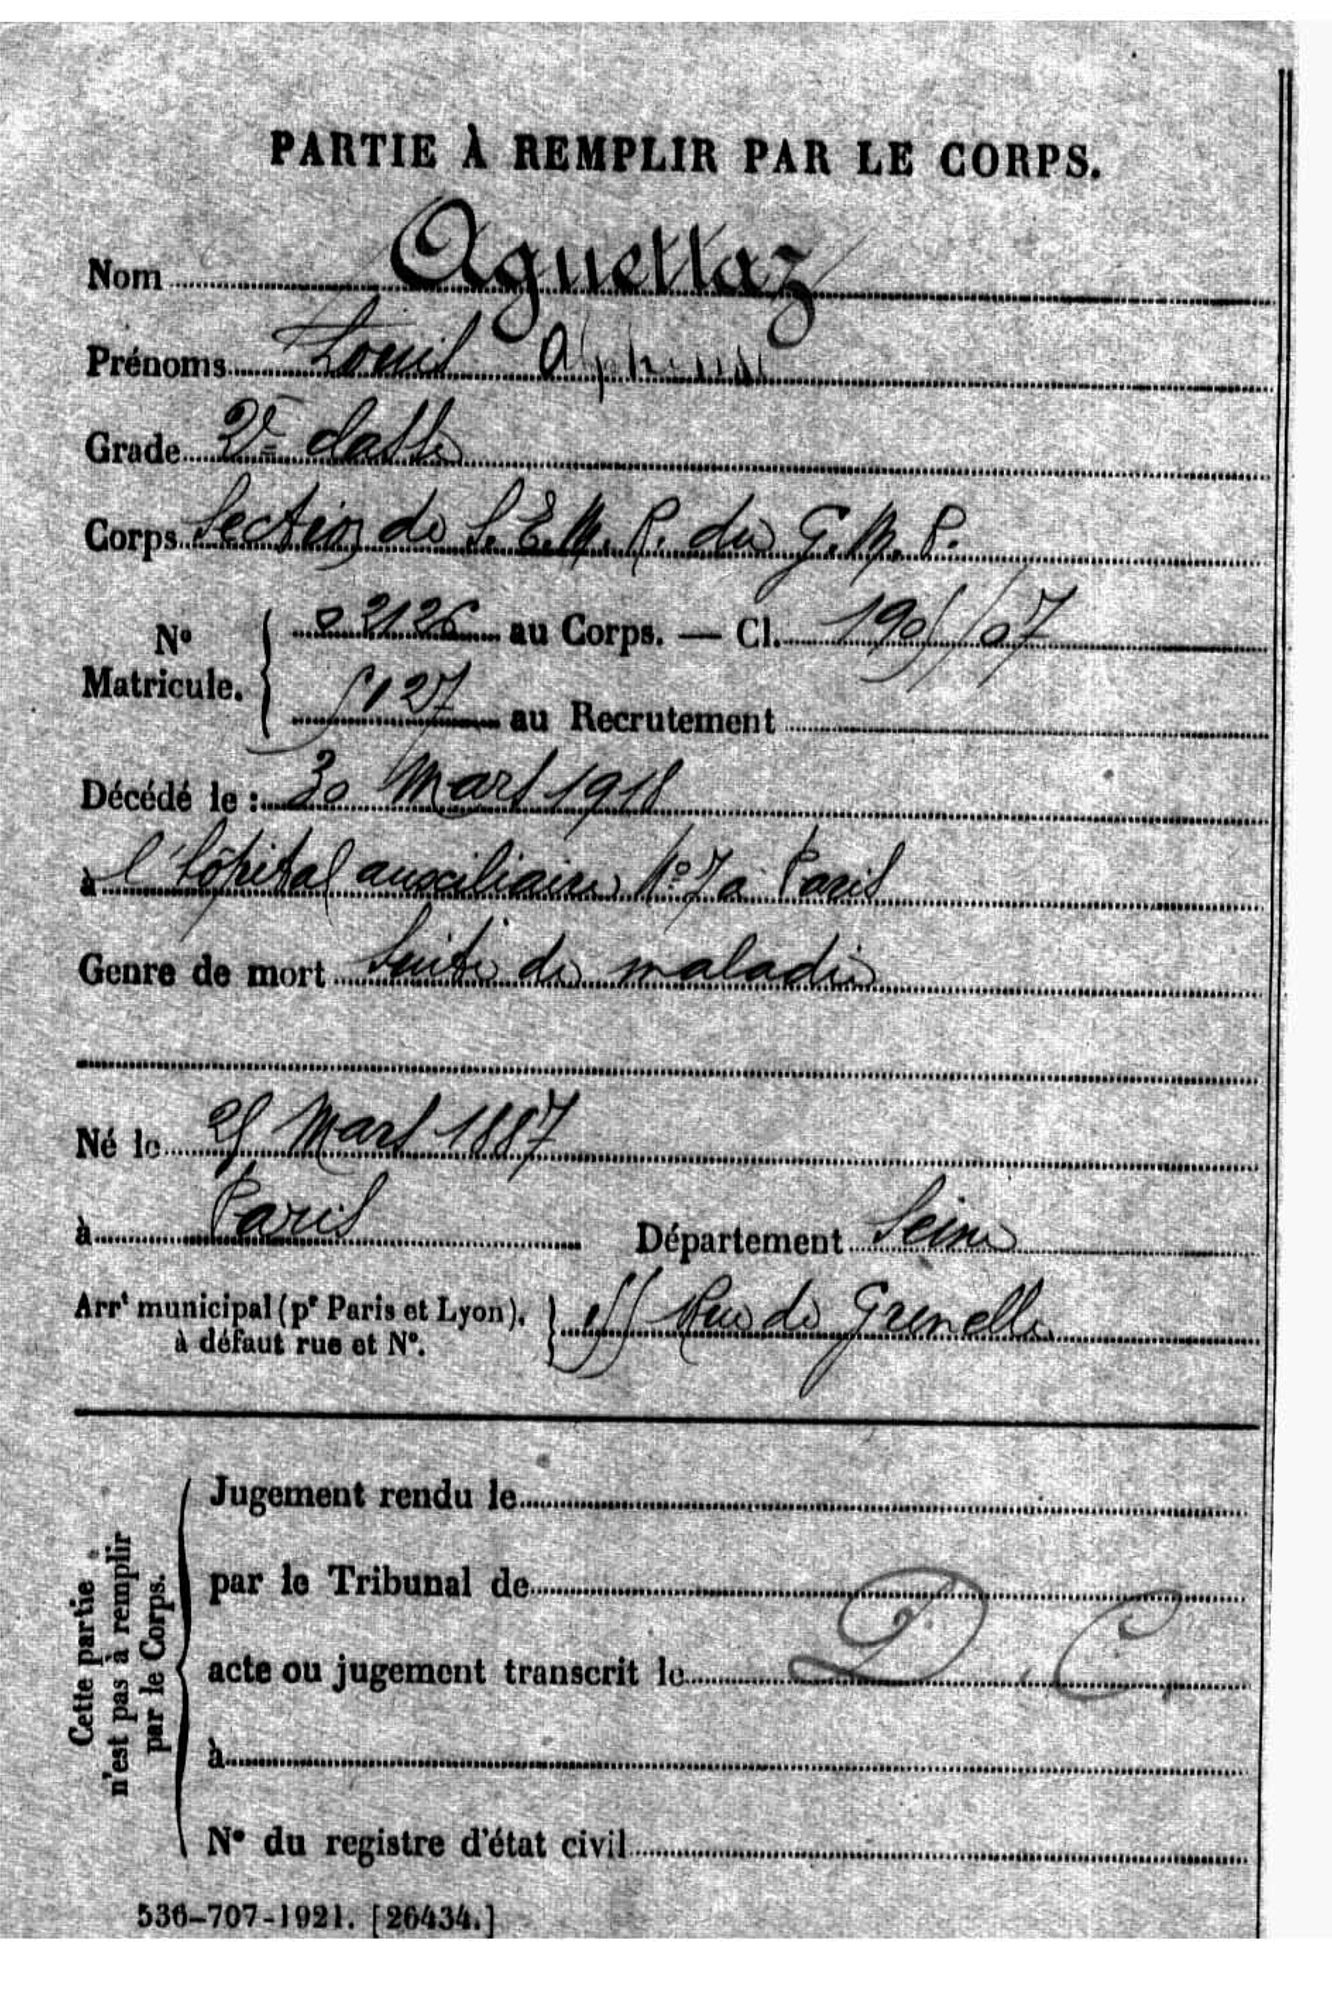 PARTIE À REMPLIR PAR LE CORPS.
Nom Aguettaz
Prénoms Louis Alphonse
Grade 2e classe
Corps Section de S. E. M. R. du G. M. P.
No Matricule. { 02126 au Corps. — Cl. 1905/07
5127 au Recrutement
Décédé le : 30 Mars 1918
à l'hôpital auxiliaire No 7 à Paris
Genre de mort Suite de maladie
Né le 25 Mars 1887
à Paris Département Seine
Arrt municipal (pr Paris et Lyon), à défaut rue et No. } Rue de Grenelle
Cette partie n'est pas à remplir par le Corps.
Jugement rendu le
par le Tribunal de
acte ou jugement transcrit le D. C.
à
No du registre d'état civil
536-707-1921. [26434.]